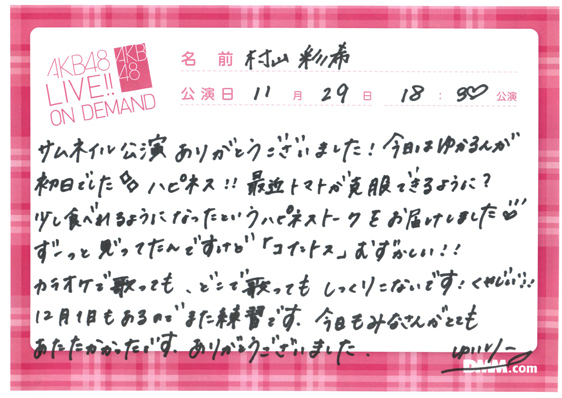 AKB48
LIVE!!
ON DEMAND
AKB
48
名前 村山彩希
公演日 11月29日 18:30公演
サムネイル公演ありがとうございました!今日はゆかるんが
初日でした ハピネス!!最近トマトが克服できるように?
少し食べれるようになったというハピネストークをお届けしました
ずーっと思ってたんですけど「コイントス」むずかしい!!
カラオケで歌っても、どこで歌ってもしっくりこないです!くやしい!!
12月1日もあるのでまた練習です。今日もみなさんがとても
あたたかかったです。ありがとうございました。
ゆいりー
DMM.com